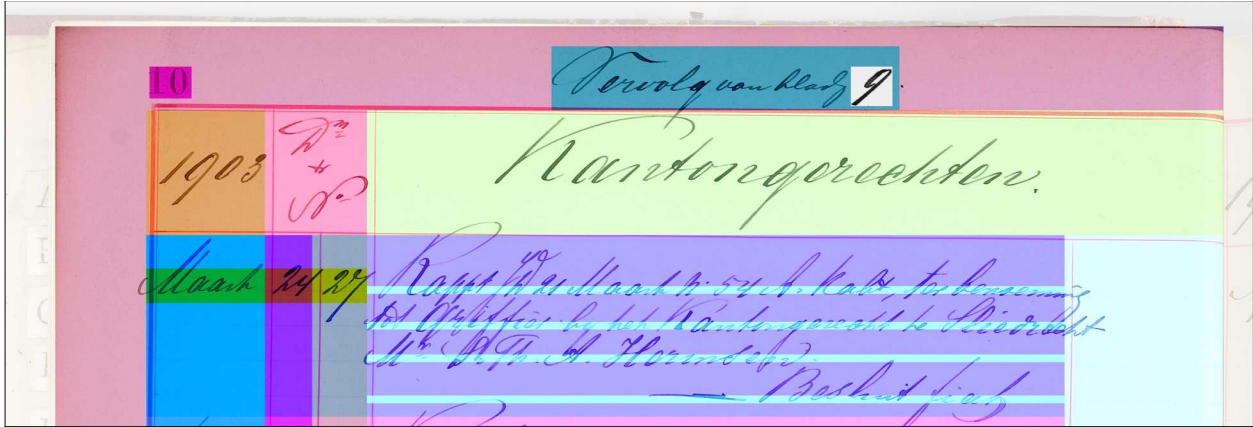 10
Vervolg van bladz 9
1903
Dm & No
Kantongerechten.
Maart 24 27 Rapp. 21 Maart No 54 A. Kab, tot benoeming
tot Griffier bij het Kantongerecht te Sliedrecht
Mr. Th. A.
— Besluit fiat